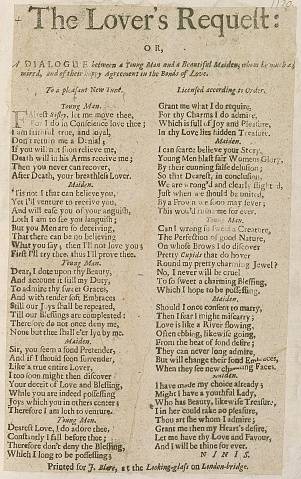 The Lover's Request:
OR,
A DIALOGUE between a Young Man and a Beautiful Maiden, whom he much ad-
mired, and of their happy Agreement in the Bonds of Love.
To a pleasant New Tune.
Licensed according to Order.
Young Man.
Fairest Betsey, let me move thee,
For I do in Conscience love thee;
I am faithful true, and loyal,
Don't return me a Denial;
If you will not soon relieve me,
Death will in his Arms receive me;
Then you never can recover,
After Death, your breathless Lover.
Maiden.
'Tis not I that can believe you,
Yet I'll venture to receive you,
And will ease you of your anguish,
Loth I am to see you languish;
But you Men are so deceiving,
That there can be no believing
What you say, then I'll not love you;
First I'll try thee, thus I'll prove thee.
Young Man.
Dear, I dote upon thy Beauty,
And account it still my Duty,
To admire thy sweet Graces,
And with tender soft Embraces
Still our Joys shall be repeated,
Till our Blessings are compleated:
Therefore do not once deny me,
None but thee shall e'er lye by me.
Maiden.
Sir, you seem a fond Pretender,
And if I should soon surrender,
Like a true entire Lover,
I too soon might then discover
Your deceit of Love and Blessing,
While you are indeed possessing
Joys which you in others center;
Therefore I am loth to venture.
Young Man.
Dearest Love, I do adore thee,
Constantly I fall before thee;
Therefore don't deny the Blessing,
Which I long to be possessing;
Grant me what I do require,
For thy Charms I do admire,
Which is full of Joy and Pleasure,
In thy Love lies hidden Treasure.
Maiden.
I can scarce believe your Story,
Young Men blast fair Womens Glory,
By their cunning false delusion;
So that Dearest, in conclusion,
We are wrong'd and clearly slighted,
Just when we should be united,
By a Frown we soon may fever;
This wou'd ruin me for ever.
Young Man.
Can I wrong so sweet a Creature,
The Perfection of good Nature,
On whose Brows I do discover
Pretty Cupids that do hover
Round my pretty charming Jewel?
No, I never will be cruel
To so sweet a charming Blessing,
Which I hope to be possessing.
Maiden.
Should I once consent to marry,
Then I fear I might miscarry;
Love is like a River flowing,
Often ebbing, likewise going,
From the heat of fond desire;
They can never long admire,
But will change their fond Embraces,
When they see new charming Faces.
I have made my choice already;
Might I have a youthful Lady,
Who has Beauty, likewise Treasure,
I in her could take no pleasure,
Thou art she whom I admire;
Grant me then my Heart's desire,
Let me have thy Love and Favour,
And I will be thine for ever.
FINIS.
Printed for J. Blare, at the Looking-glass on London-bridge.